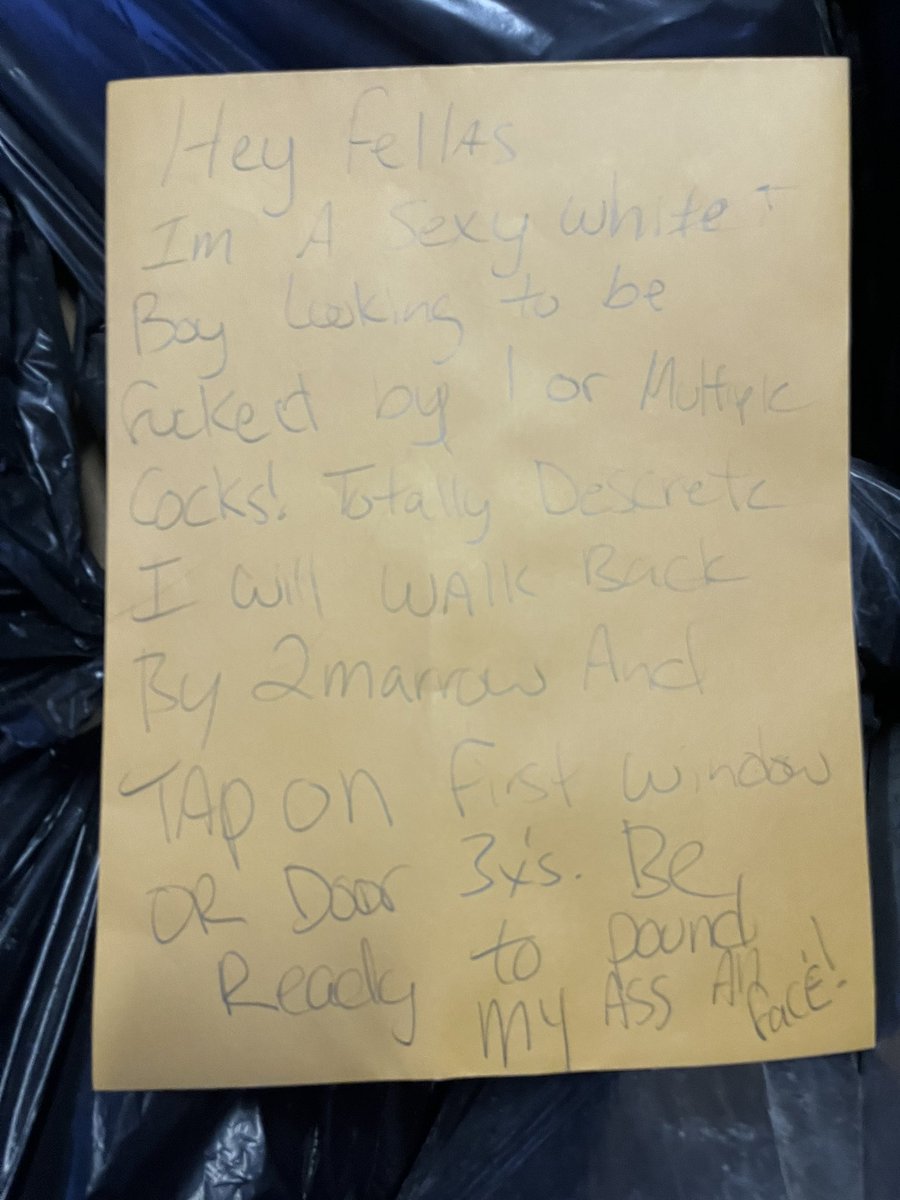 Hey Fellas
Im A Sexy white
Boy Looking to be
fucked by 1 or Multiple
Cocks! Totally Descrete
I will WAlk Back
By 2marrow And
TAp on first window
OR Door 3x's. Be
Ready to pound
my Ass An
face!